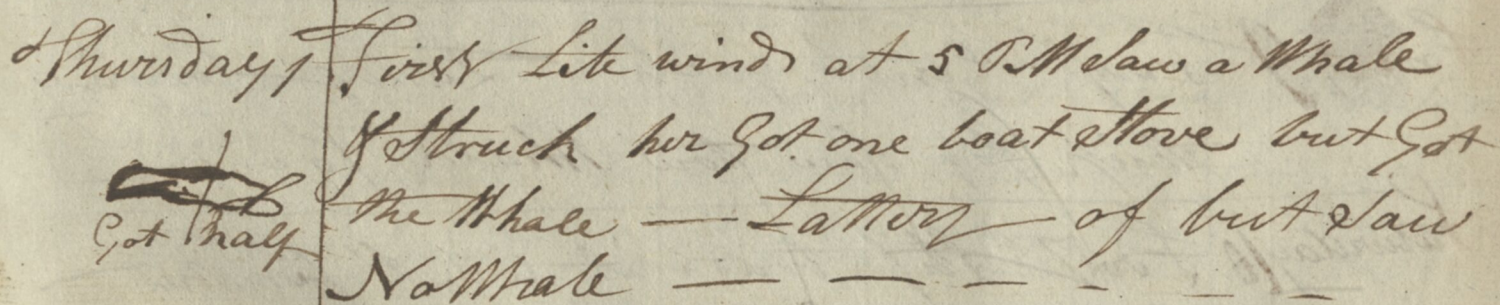 Thursday 1 First Lite winds at 5 PM Saw a Whale
& Struck her Got one boat Stove but Got
the Whale — Lattery of but Saw
Got half
No Whale — — — - - -